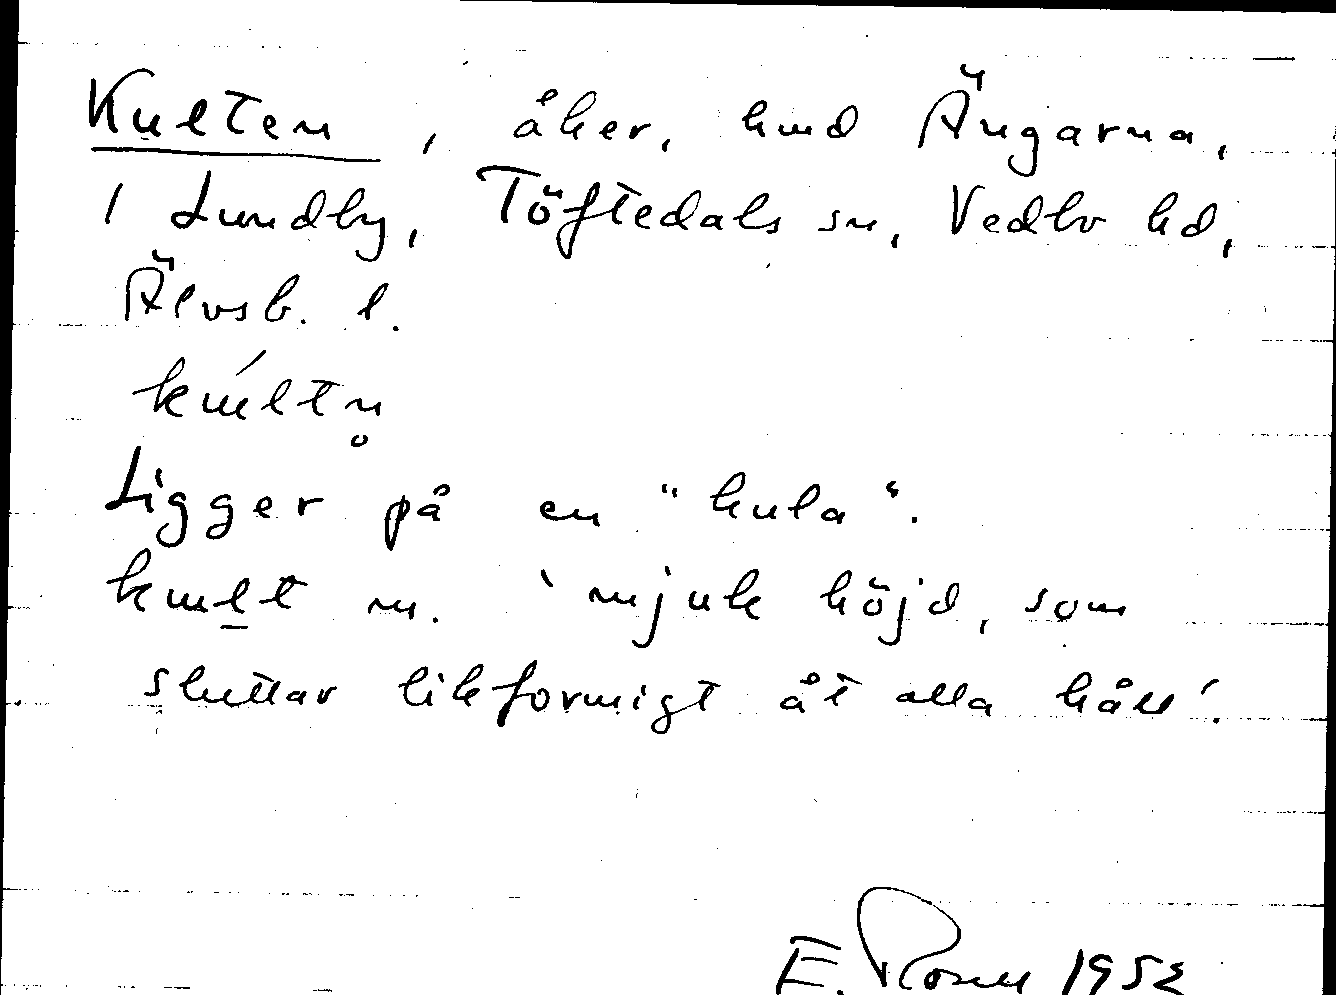 Kulten, åker, hmd Ängarna,
1 Lundby, Töftedals sn, Vedbo hd,
Älvsb. l.
Ligger på en "kula".
m. `mjuk höjd, som
sluttar likformigt åt alla håll´.
E. Rosell 1952